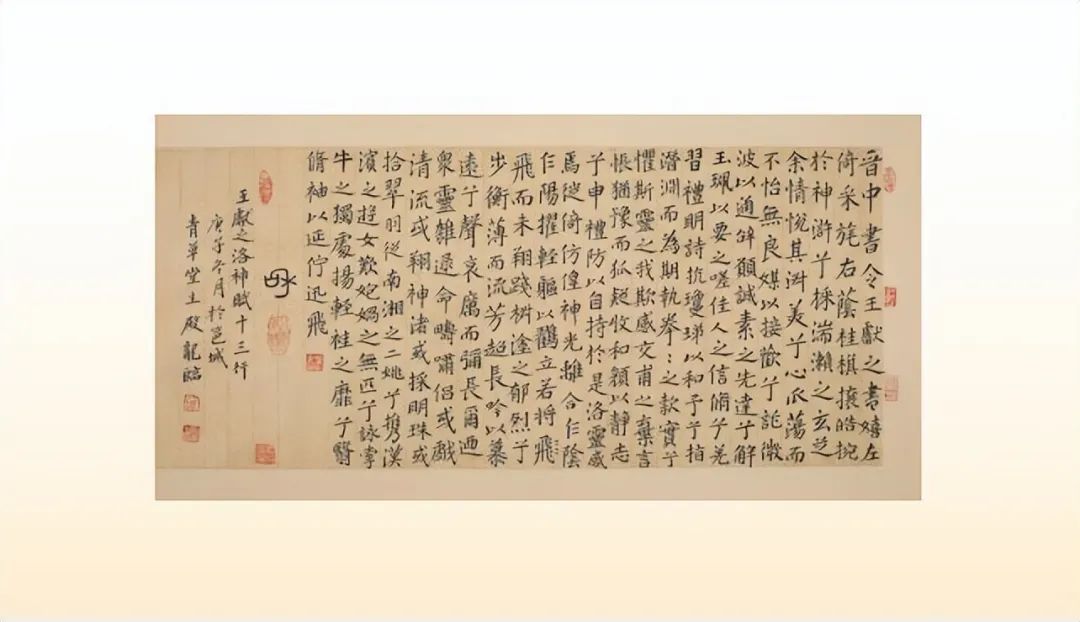 晋中書令王獻之書嬉左
倚采旄右蔭桂棋攘皓捥
於神滸兮採湍瀨之玄芝
余情悅其淑美兮心振蕩而
不怡無良媒以接歡兮託微
波以通辞願誠素之先達兮解
玉珮以要之嗟佳人之信脩兮羌
習禮明詩抗瓊珶以和予兮指
潛淵而為期執拳：之款實兮
懼斯靈之我欺感交甫之棄言
悵猶豫而狐疑收和顏以靜志
兮申禮防以自持於是洛靈感
焉徙倚仿偟神光離合乍陰
乍陽擢輕軀以鶴立若將飛
飛而未翔踐椒途之郁烈兮
步衡薄而流芳超長吟以慕
遠兮聲哀厲而彌長爾迺
衆靈雜遝命疇嘯侶或戲
清流或翔神渚或採明珠或
拾翠羽從南湘之二姚兮携漢
濱之遊女歎媧之無匹兮詠牽
牛之獨處揚輕袿之靡兮翳
脩袖以延佇迅飛
王獻之洛神賦十三行
庚子冬月於邕城
青草堂主殷龍臨